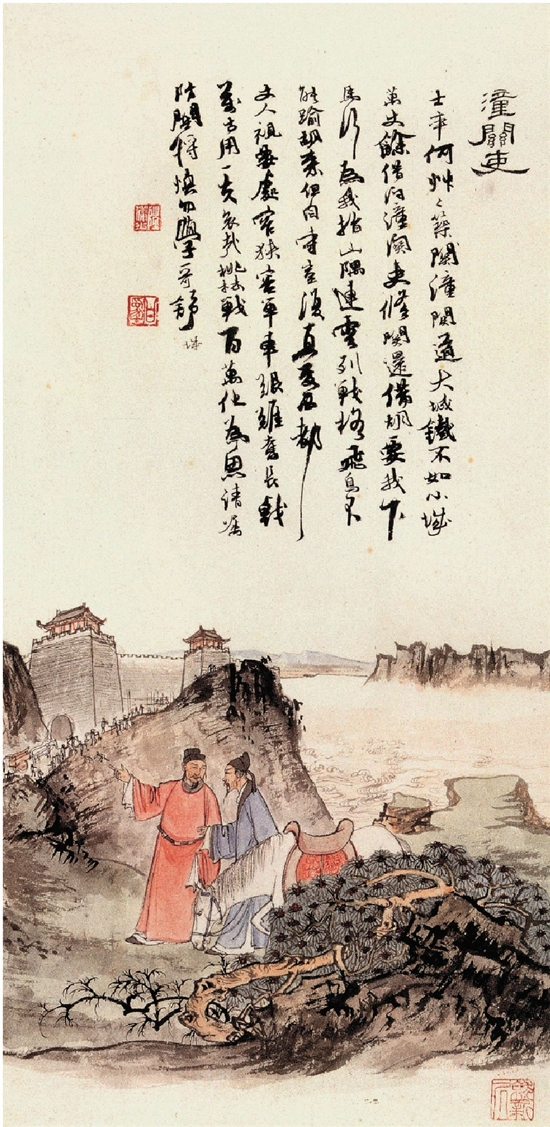 潼關吏
士卒何艸々築關潼關道大城鐵不如小城
萬丈餘借问潼關吏修關還備胡要我下
馬行為我指山隅連雲列戰格飛鳥不
能踰胡来但自守豈須憂西都
丈人視要處窄狹容單車艱難奮長戟
萬古用一夫哀哉桃林戰百萬化為魚請囑
防關將慎勿學哥舒